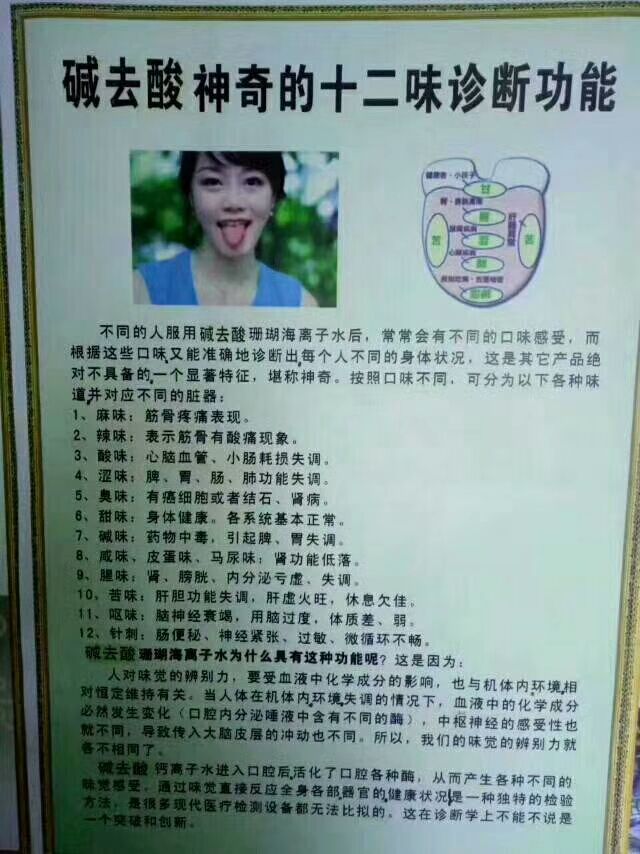 碱去酸 神奇的十二味诊断功能
健康者·小孩子
甘
苦
苦
不同的人服用碱去酸珊瑚海离子水后，常常会有不同的口味感受，而
根据这些口味又能准确地诊断出每个人不同的身体状况，这是其它产品绝
对不具备的一个显著特征，堪称神奇。按照口味不同，可分为以下各种味
道并对应不同的脏器：
1、麻味：筋骨疼痛表现。
2、辣味：表示筋骨有酸痛现象。
3、酸味：心脑血管、小肠耗损失调。
4、涩味：脾、胃、肠、肺功能失调。
5、臭味：有癌细胞或者结石、肾病。
6、甜味：身体健康。各系统基本正常。
7、碱味：药物中毒，引起脾、胃失调。
8、咸味、皮蛋味、马尿味：肾功能低落。
9、腥味：肾、膀胱、内分泌亏虚、失调。
10、苦味：肝胆功能失调，肝虚火旺，休息欠佳。
11、呕味：脑神经衰竭，用脑过度，体质差、弱。
12、针刺：肠便秘、神经紧张、过敏、微循环不畅。
碱去酸 珊瑚海离子水为什么具有这种功能呢？这是因为：
人对味觉的辨别力，要受血液中化学成分的影响，也与机体内环境相
对恒定维持有关。当人体在机体内环境失调的情况下，血液中的化学成分
必然发生变化（口腔内分泌唾液中含有不同的酶），中枢神经的感受性也
就不同，导致传入大脑皮层的冲动也不同。所以，我们的味觉的辨别力就
各不相同了。
碱去酸 钙离子水进入口腔后活化了口腔各种酶，从而产生各种不同的
味觉感受，通过味觉直接反应全身各部器官的健康状况是一种独特的检验
方法，是很多现代医疗检测设备都无法比拟的。这在诊断学上不能不说是
一个突破和创新。